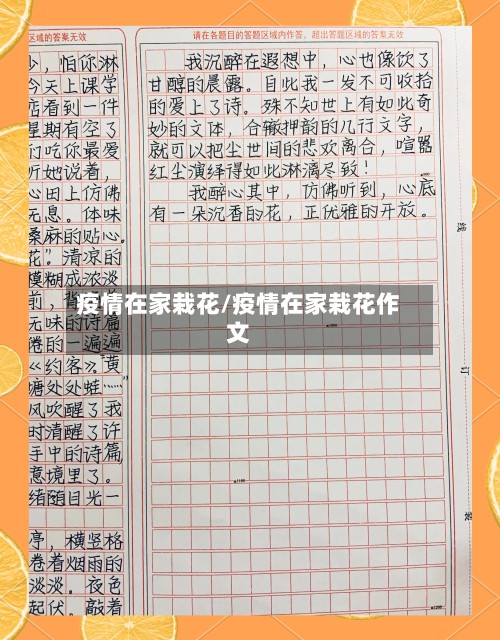 区域的答案无效
少,怕你淋
今天上课学
店看到一件
星期有空了
们吃你最爱
听她说着,
心田上仿佛
无息。体味
桑麻的贴心。
花”。清凉的
模糊成淡淡
前,背
无味的诗篇
卷的一遍遍
《约客》,黄
塘处处蛙……”
风吹醒了我
时清醒了许
手中的诗篇,
意境里了。
绪随目光一
亭,横竖格
卷着烟雨的
淡淡。夜色
起伏。敲着
请在各题目的答题区域内作答,超出答题区域的答案无效
我沉醉在遐想中,心也像饮了
甘醇的晨露。自此我一发不可收拾
的爱上了诗。殊不知世上有如此奇
妙的文体,合辙押韵的几行文字,
就可以把尘世间的悲欢离合,喧嚣
红尘演绎得如此淋漓尽致!
我醉心其中,仿佛听到,心底
有一朵沉香的花,正优雅的开放。
疫情在家栽花/疫情在家栽花作
文
线
订
装